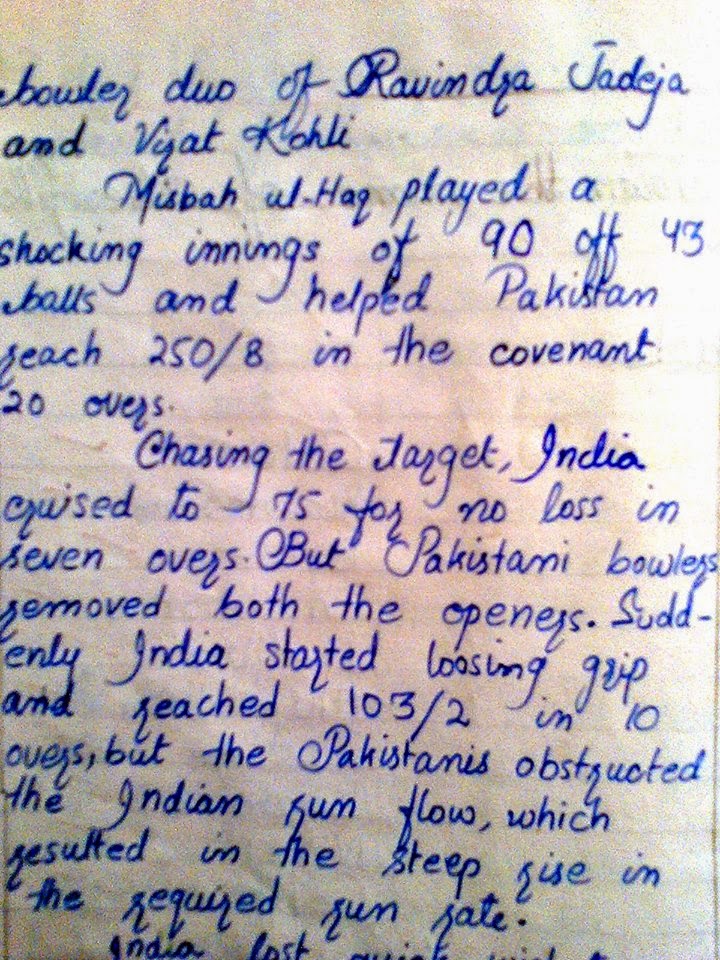 bowler duo of Ravindra Jadeja
and Virat Kohli
Misbah ul-Haq played a
shocking innings of 90 off 43
balls and helped Pakistan
reach 250/8 in the covenant
20 overs.
Chasing the target, India
cruised to 75 for no loss in
seven overs. But Pakistani bowlers
removed both the openers. Sudd-
enly India started loosing grip
and reached 103/2 in 10
overs, but the Pakistanis obstructed
the Indian run flow, which
resulted in the steep rise in
the required run rate.
India lost quick